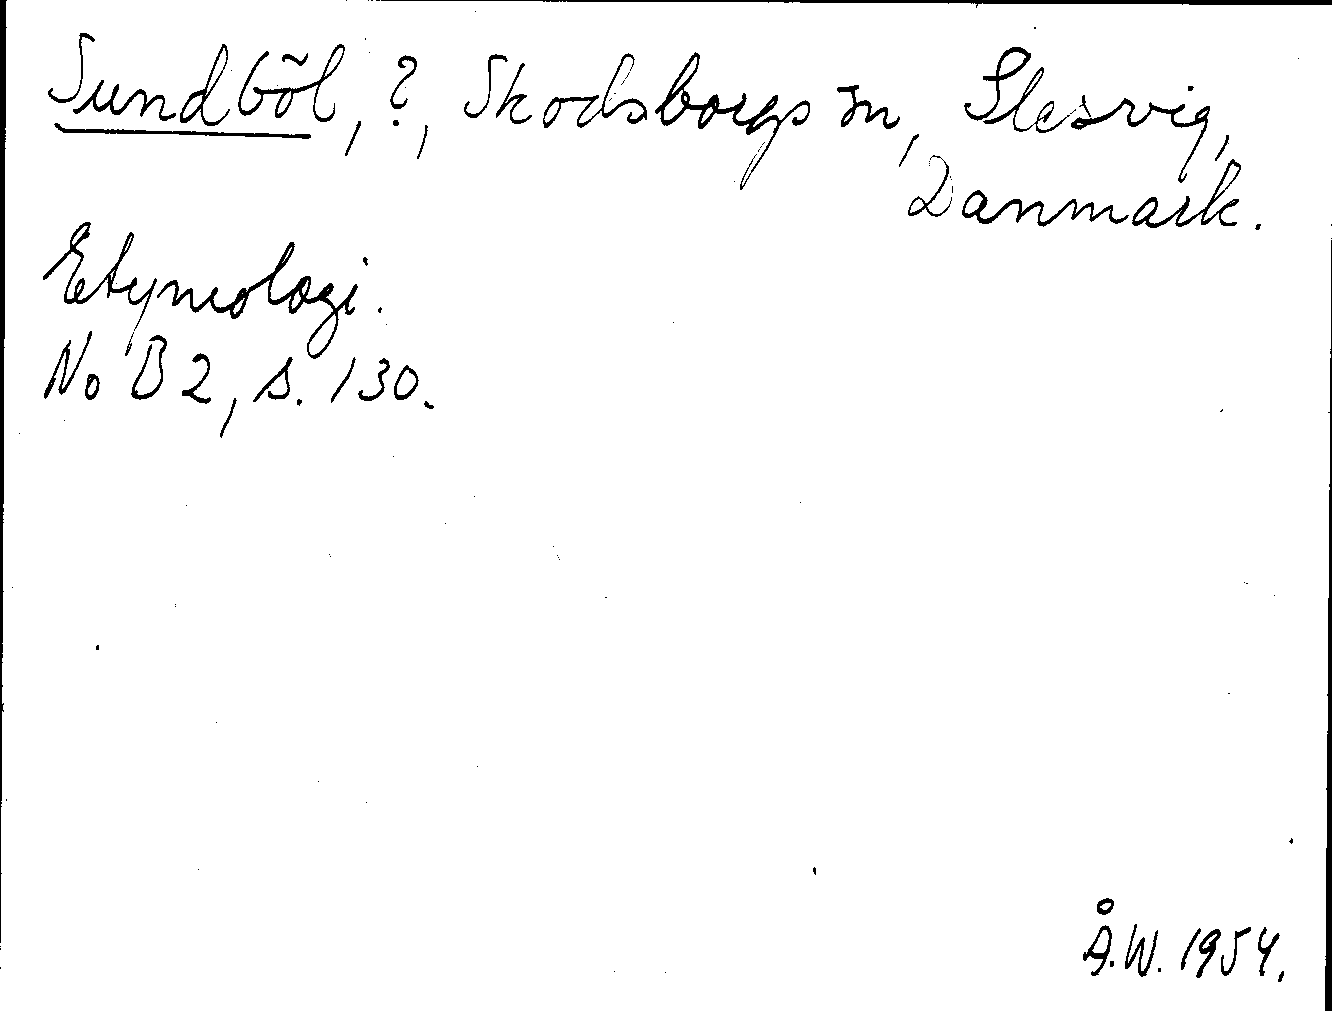 Sundbõl, ?, Skodsborgs sn, Slesvig,
Danmark.
Etymologi.
No B 2, s. 130.
Å.W. 1954.